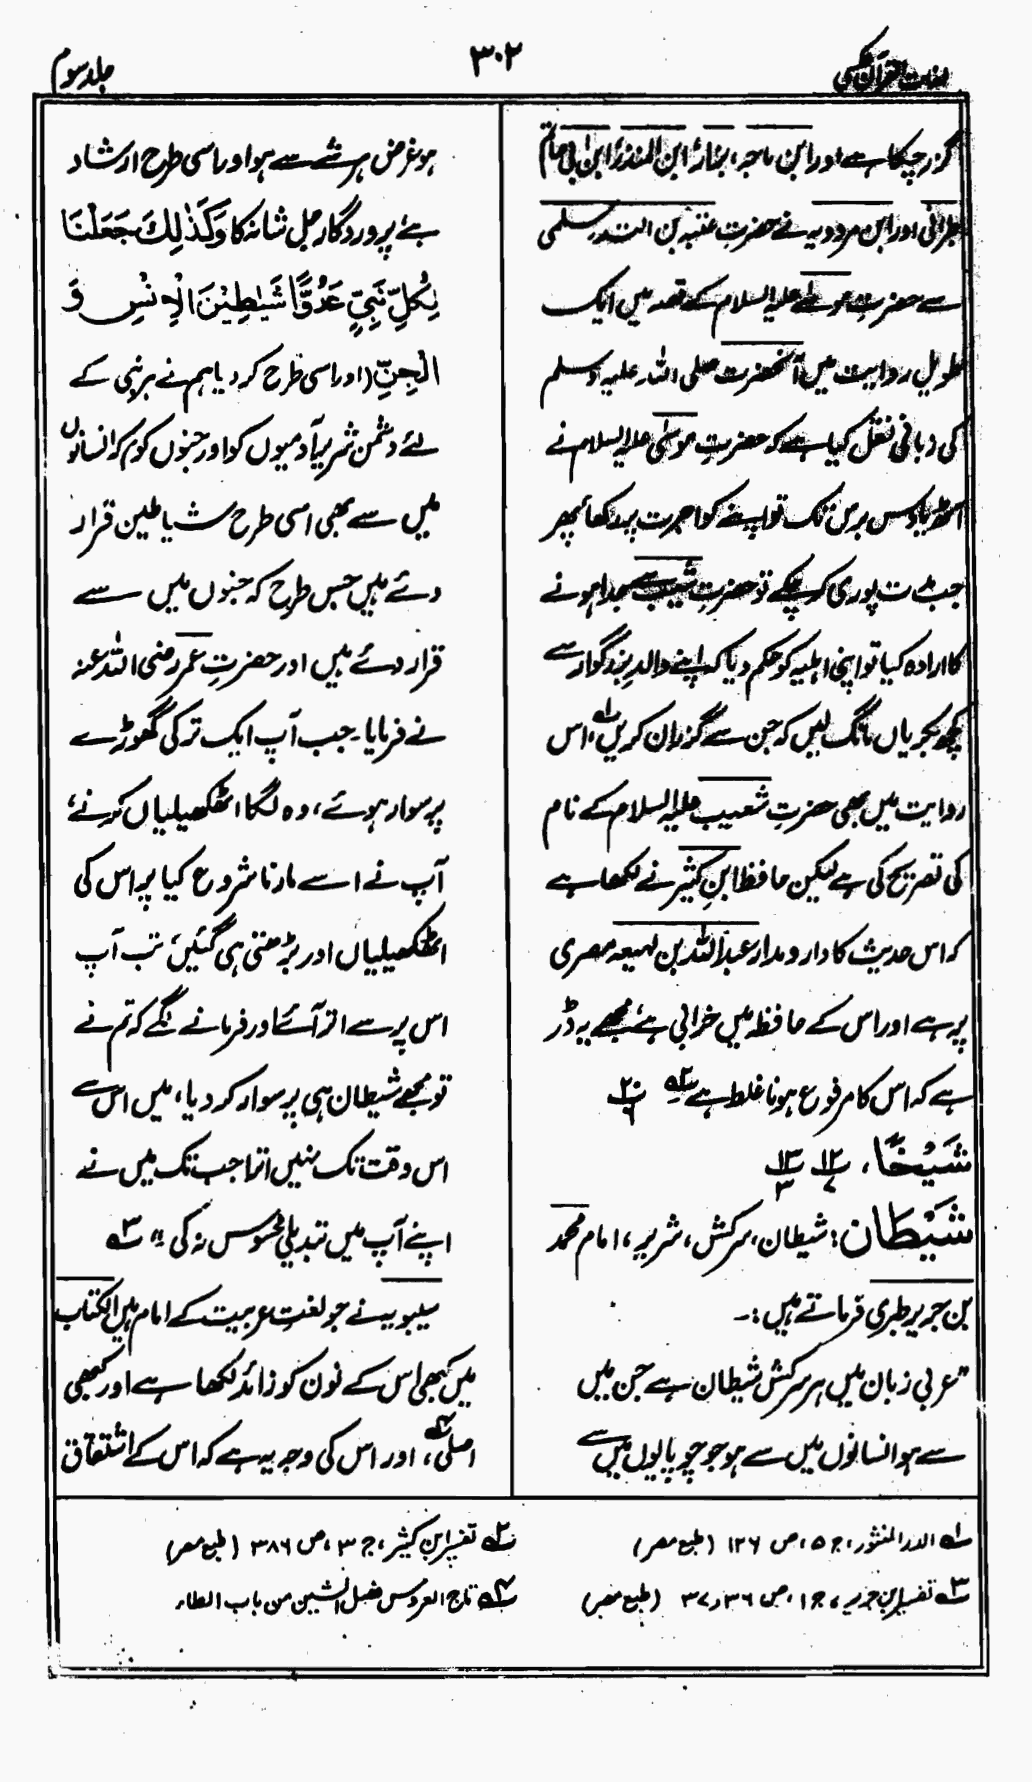 لغات القرآن
۳۰۲
جلد سوم
گزر چکا ہے اور ابن ماجہ، بزار، ابن المنذر، ابن ابی حاتم
طبرانی اور ابن مردویہ نے حضرت عتبہ بن الندر سلمی
سے حضرتِ موسیٰ علیہ السلام کے قصہ میں ایک
طویل روایت میں آنحضرت صلی اللہ علیہ وسلم
کی زبانی نقل کیا ہے کہ حضرتِ موسیٰ علیہ السلام نے
آٹھ یا دس برس تک تو اپنے کو اجرت پر رکھا، پھر
جب مدت پوری کر چکے تو حضرتِ شعیب سے جدا ہونے
کا ارادہ کیا تو اپنی اہلیہ کو حکم دیا کہ اپنے والد بزرگوار سے
کچھ بکریاں مانگ لیں کہ جن سے گزران کریں ۱ے، اس
روایت میں بھی حضرتِ شعیب علیہ السلام کے نام
کی تصریح کی ہے لیکن حافظ ابنِ کثیر نے لکھا ہے
کہ اس حدیث کا دارومدار عبداللہ بن لہیعہ مصری
پر ہے اور اس کے حافظہ میں خرابی ہے، مجھے یہ ڈر
ہے کہ اس کا مرفوع ہونا غلط ہے ۲ے ۲۰/۶
شَیْخًا، ۱۲/۷ ۱۳/۳
شَیْطَان: شیطان، سرکش، شریر، امام محمد
بن جریر طبری فرماتے ہیں :۔
"عربی زبان میں ہر سرکش شیطان ہے جن میں
سے ہو انسانوں میں سے ہو جو چوپایوں میں سے
ہو غرض ہر شے سے ہو اور اسی طرح ارشاد
ہے پروردگار جل شانہ کا وَكَذٰلِكَ جَعَلْنَا
لِكُلِّ نَبِيٍّ عَدُوًّا شَيٰطِيْنَ الْاِنْسِ وَ
الْجِنِّ (اور اسی طرح کر دیا ہم نے ہر نبی کے
لئے دشمن شریر آدمیوں کو اور جنوں کو) کہ انسانوں
میں سے بھی اسی طرح شیاطین قرار
دئے ہیں جس طرح کہ جنوں میں سے
قرار دئے ہیں اور حضرتِ عمر رضی اللہ عنہ
نے فرمایا۔ جب آپ ایک ترکی گھوڑے
پر سوار ہوئے، وہ لگا اٹھکھیلیاں کرنے،
آپ نے اسے مارنا شروع کیا پر اس کی
اٹھکھیلیاں اور بڑھتی ہی گئیں، تب آپ
اس پر سے اتر آئے اور فرمانے لگے کہ تم نے
تو مجھے شیطان ہی پر سوار کر دیا، میں اس سے
اس وقت تک نہیں اترا جب تک میں نے
اپنے آپ میں تبدیلی محسوس نہ کی "۳ے
سیبویہ نے جو لغتِ عربیت کے امام ہیں الکتاب
میں کبھی اس کے نون کو زائد لکھا ہے اور کبھی
اصلی ۴ے، اور اس کی وجہ یہ ہے کہ اس کے اشتقاق
۱ے الدر المنثور، ج ۵، ص ۱۲۶ (طبع مصر)
۲ے تفسیر ابنِ کثیر، ج ۳، ص ۳۸۶ (طبع مصر)
۳ے تفسیر ابن جریر، ج ۱، ص ۳۶ و ۳۷ (طبع مصر)
۴ے تاج العروس فصل الشین من باب الطاء